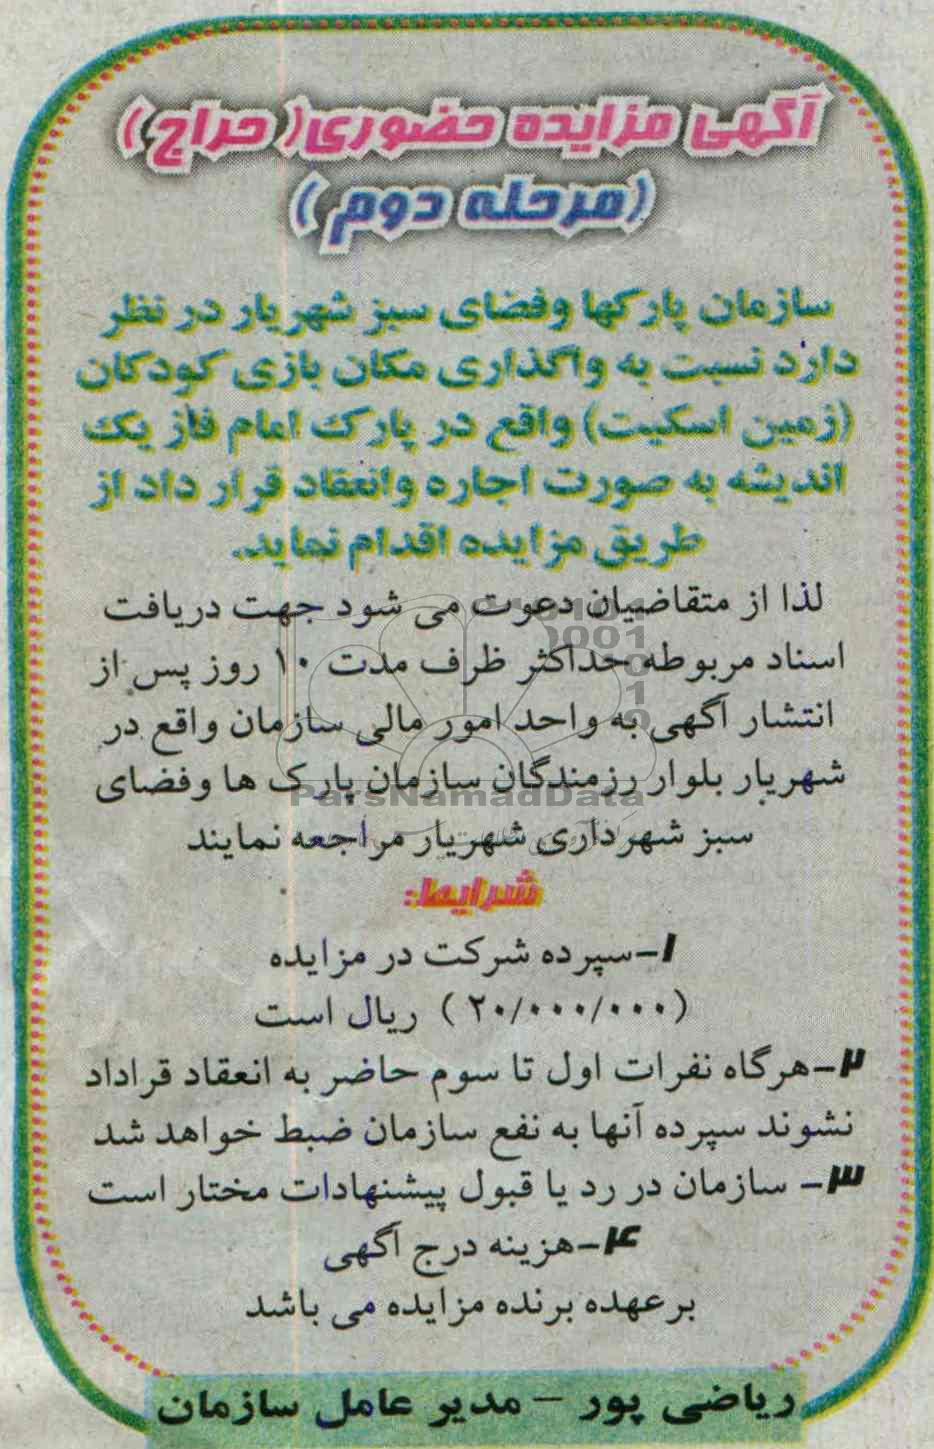 آگهی مزایده حضوری( حراج )
(مرحله دوم )
سازمان پارکها وفضای سبز شهریار در نظر
دارد نسبت به واگذاری مکان بازی کودکان
(زمین اسکیت) واقع در پارک امام فاز یک
اندیشه به صورت اجاره وانعقاد قرار داد از
طریق مزایده اقدام نماید.
لذا از متقاضیان دعوت می شود جهت دریافت
اسناد مربوطه حداکثر ظرف مدت ۱۰ روز پس از
انتشار آگهی به واحد امور مالی سازمان واقع در
شهریار بلوار رزمندگان سازمان پارک ها وفضای
ParsNamadData
سبز شهرداری شهریار مراجعه نمایند
شرایط:
۱-سپرده شرکت در مزایده
(۲۰/۰۰۰/۰۰۰ ) ریال است
۲-هرگاه نفرات اول تا سوم حاضر به انعقاد قراداد
نشوند سپرده آنها به نفع سازمان ضبط خواهد شد
۳- سازمان در رد یا قبول پیشنهادات مختار است
۴-هزینه درج آگهی
برعهده برنده مزایده می باشد
ریاضی پور - مدیر عامل سازمان